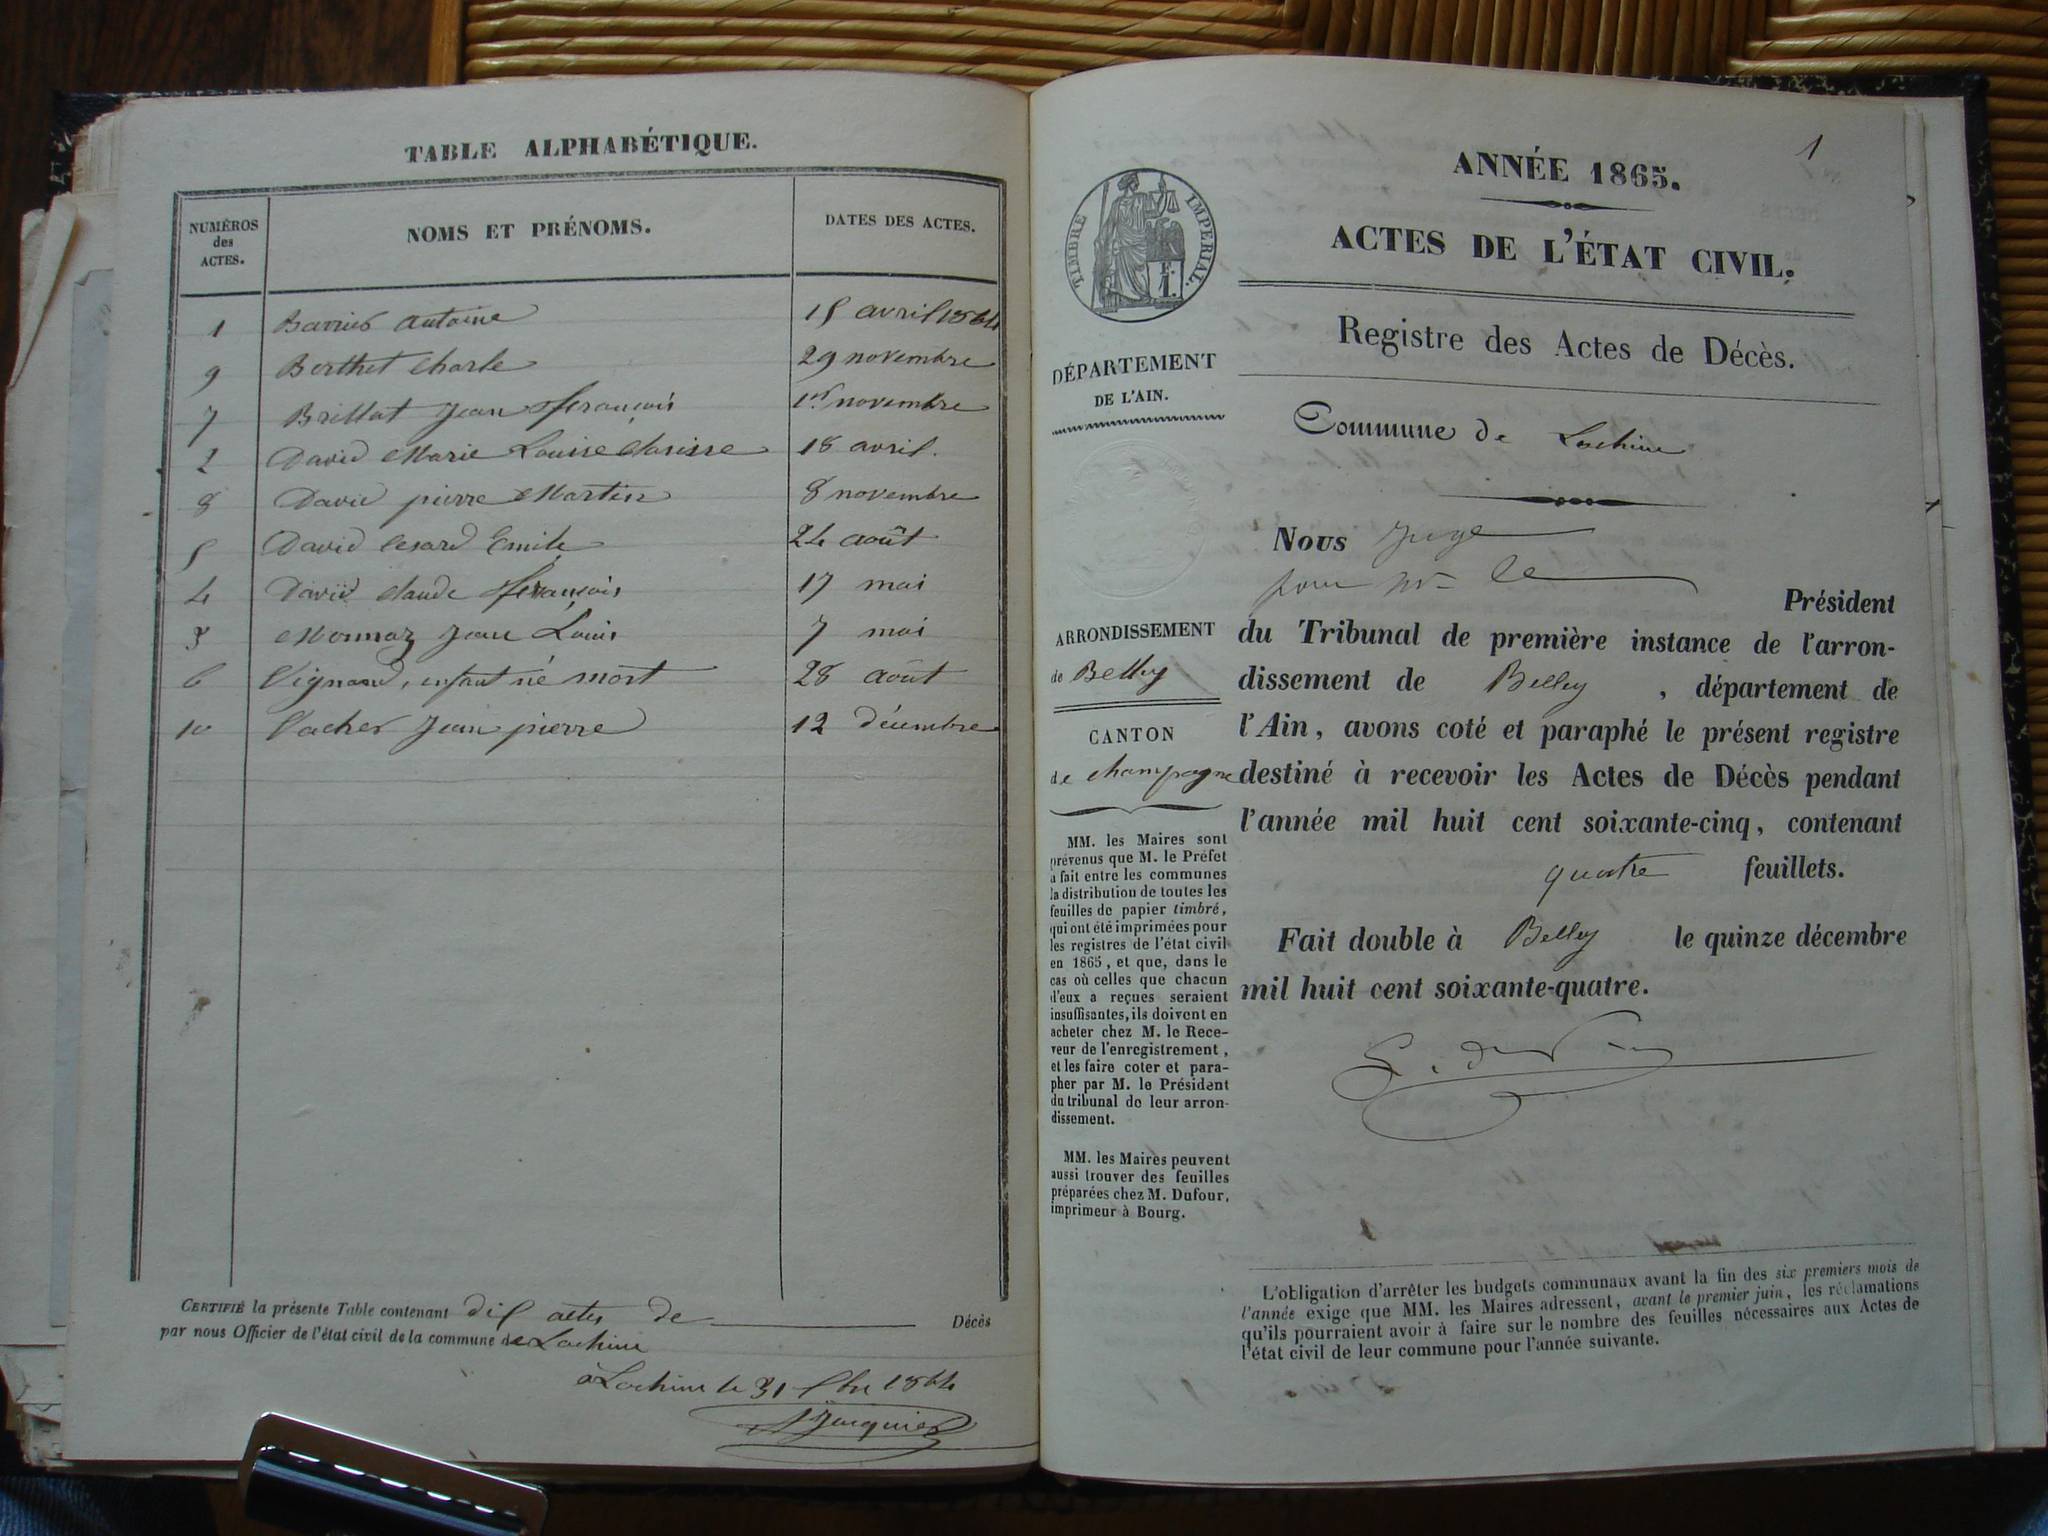 TABLE ALPHABÉTIQUE.
NUMÉROS des ACTES. NOMS ET PRÉNOMS. DATES DES ACTES.
1 Barrier antoine 15 avril 1864
9 Berthet Charle 29 novembre
7 Brillat Jean françois 1er novembre
2 David Marie Louise Clarisse 18 avril.
8 David pierre Martin 8 novembre
5 David Cesard Emile 24 août
4 David Claude françois 17 mai
3 Monnaz Jean Louis 7 mai
6 Vignand, enfant né mort 28 août
10 Vacher Jean pierre 12 décembre
CERTIFIÉ la présente Table contenant dix actes de Décès
par nous Officier de l'état civil de la commune de Lochieu
à Lochieu le 31 Xbre 1864
Jacquier
1
ANNÉE 1865.
ACTES DE L'ÉTAT CIVIL.
Registre des Actes de Décès.
Commune de Lochieu
TIMBRE IMPERIAL.
F.
1.
DÉPARTEMENT
DE L'AIN.
ARRONDISSEMENT
de Belley
CANTON
de champagne
MM. les Maires sont
prévenus que M. le Préfet
a fait entre les communes
la distribution de toutes les
feuilles de papier timbré,
qui ont été imprimées pour
les registres de l'état civil
en 1865, et que, dans le
cas où celles que chacun
d'eux a reçues seraient
insuffisantes, ils doivent en
acheter chez M. le Rece-
veur de l'enregistrement,
et les faire coter et para-
pher par M. le Président
du tribunal de leur arron-
dissement.
MM. les Maires peuvent
aussi trouver des feuilles
préparées chez M. Dufour,
imprimeur à Bourg.
Nous Juge
pour Mr le
Président
du Tribunal de première instance de l'arron-
dissement de Belley, département de
l'Ain, avons coté et paraphé le présent registre
destiné à recevoir les Actes de Décès pendant
l'année mil huit cent soixante-cinq, contenant
quatre feuillets.
Fait double à Belley le quinze décembre
mil huit cent soixante-quatre.
L'obligation d'arrêter les budgets communaux avant la fin des six premiers mois de
l'année exige que MM. les Maires adressent, avant le premier juin, les réclamations
qu'ils pourraient avoir à faire sur le nombre des feuilles nécessaires aux Actes de
l'état civil de leur commune pour l'année suivante.